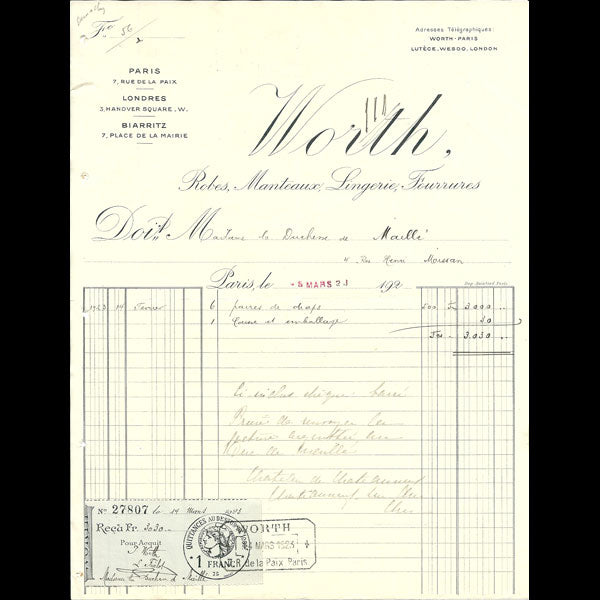 Fo 56
Adresses Télégraphiques:
WORTH-PARIS
LUTÈCE.WESDO.LONDON
PARIS
7, RUE DE LA PAIX
LONDRES
3, HANOVER SQUARE.W.
BIARRITZ
7, PLACE DE LA MAIRIE
Worth,
Robes, Manteaux, Lingerie, Fourrures
Doit Madame la Duchesse de Maillé
4 Rue Henri Moissan
Paris, le -5 MARS 23 192
1923 14 Février 6 paires de draps 500 Frs 3.000 ..
1 Caisse et emballage 30 ..
Frs 3.030 ..
Ci inclus chèque barré
Prière de renvoyer la
facture acquittée au
Duc de Maillé
Château de Châteauneuf
Châteauneuf sur Cher
Cher
No 27807 le 14 Mars 1923
Reçu Fr. 3030
Pour Acquit
Madame la Duchesse de Maillé
QUITTANCES
1 FRANC
WORTH
14 MARS 1923
7, R. de la Paix. Paris
WORTH